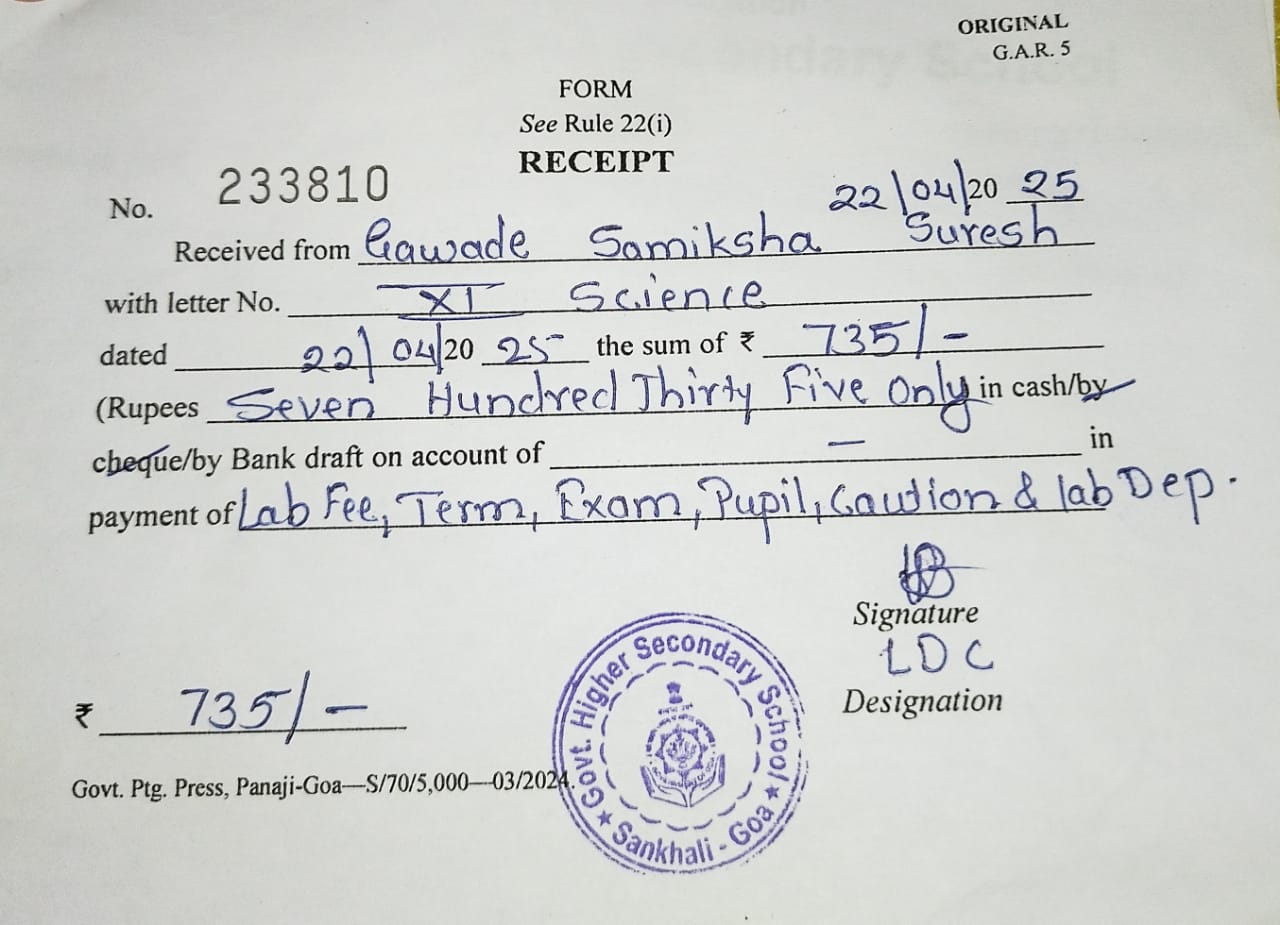 ORIGINAL
G.A.R. 5
FORM
See Rule 22(i)
RECEIPT
No. 233810
22/04/2025
Received from Gawade Samiksha Suresh
with letter No. XI Science
dated 22/04/2025 the sum of ₹ 735/-
(Rupees Seven Hundred Thirty Five Only in cash/by
cheque/by Bank draft on account of — in
payment of Lab Fee, Term, Exam, Pupil, Caution & lab Dep.
Signature
LDC
Designation
₹ 735/-
Govt. Ptg. Press, Panaji-Goa—S/70/5,000—03/2024.
Govt. Higher Secondary School ★ Sankhali - Goa ★